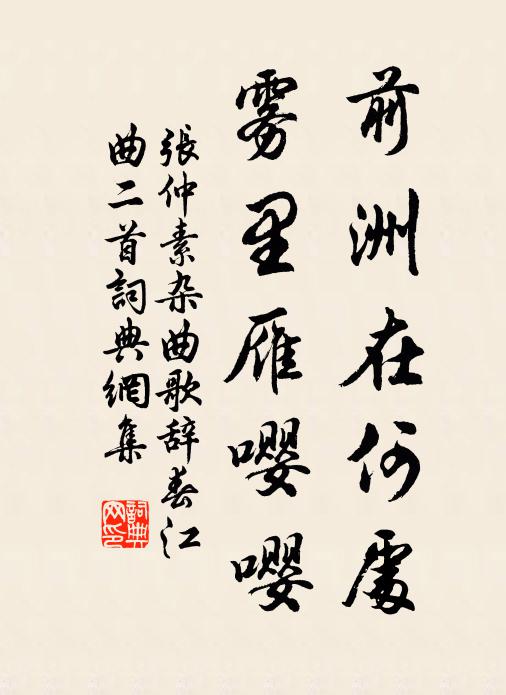 前洲在何處
雾里雁嘤嘤
張仲素杂曲歌辞春江
曲二首詞典網集
詞典
网印